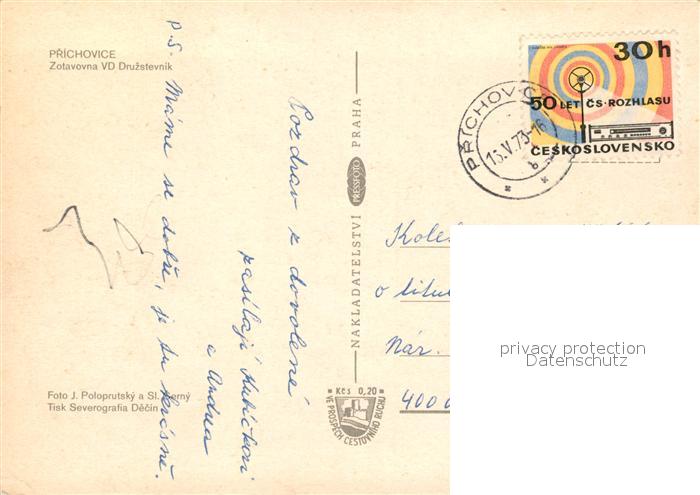 PŘÍCHOVICE
Zotavovna VD Družstevník
Pozdrav z dovolené
zasílají Kubíčkovi
a Andrea
P.S. Máme se dobře, je tu krásně.
Foto J. Poloprutský a Sl. Černý
Tisk Severografia Děčín
NAKLADATELSTVÍ PRESSFOTO PRAHA
Kčs 0,20
VE PROSPĚCH CESTOVNÍHO RUCHU
30 h
50 LET ČS. ROZHLASU
ČESKOSLOVENSKO
PŘÍCHOVICE
15.V.73-16
o
Nár.
400
privacy protection
Datenschutz